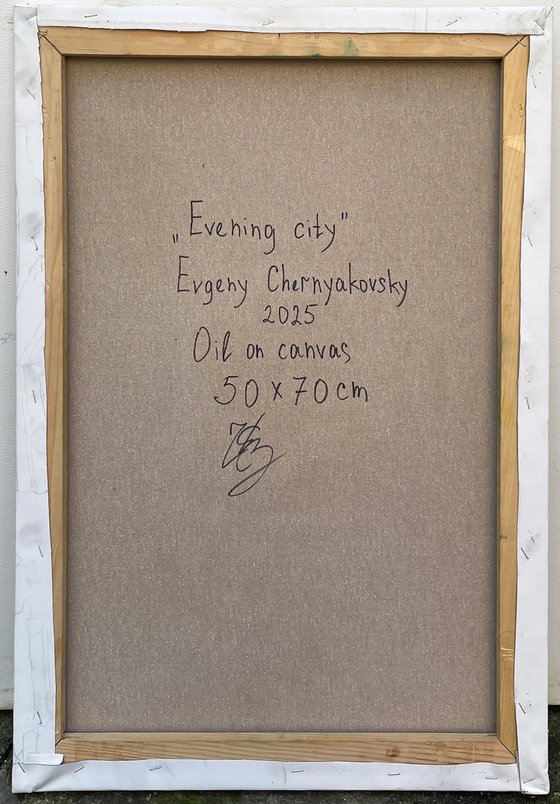 „Evening city"
Evgeny Chernyakovsky
2025
Oil on canvas
50 x 70 cm